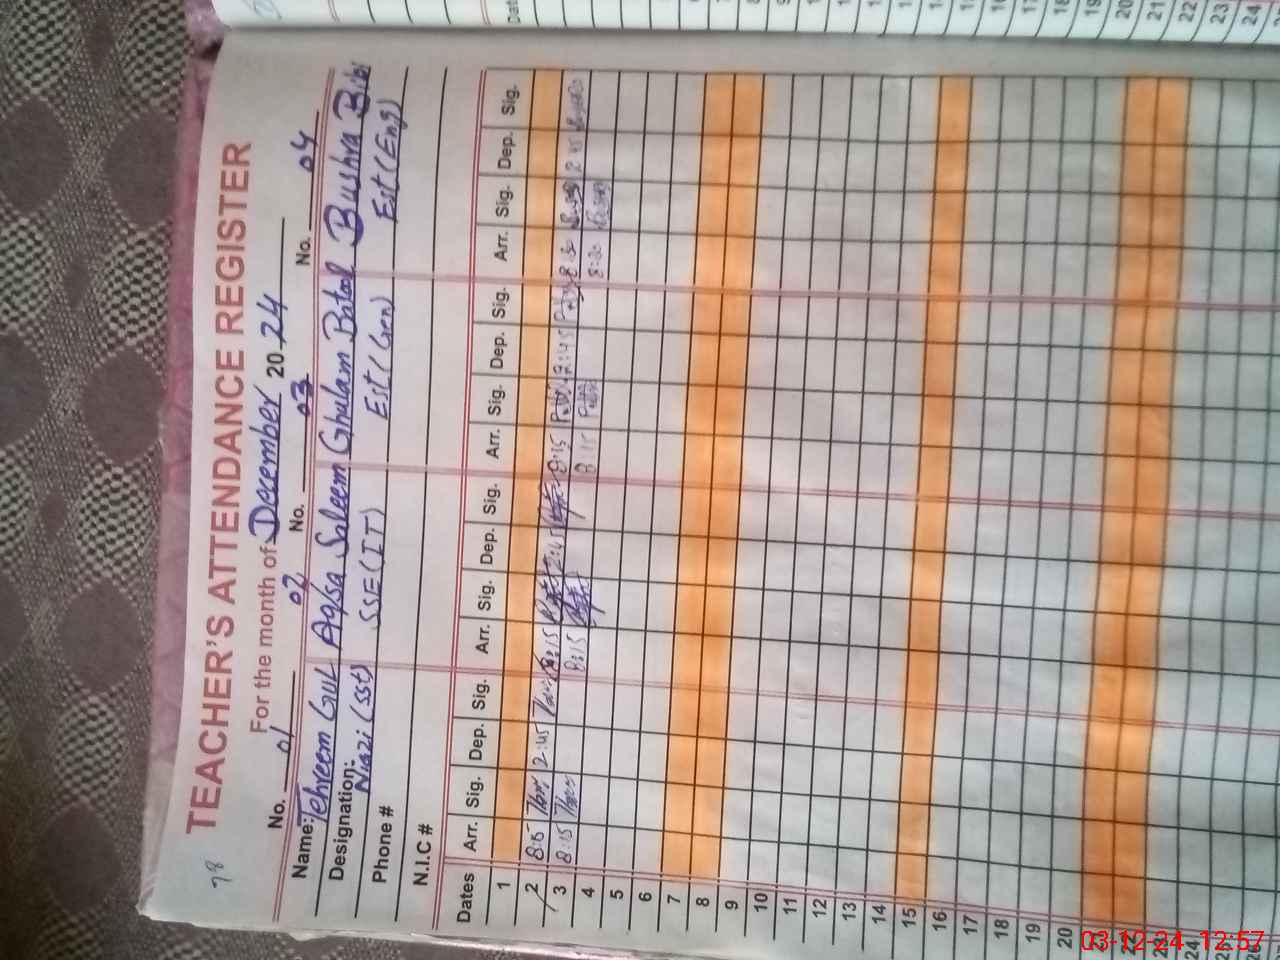 Dat
78
TEACHER'S ATTENDANCE REGISTER
For the month of December 2024
No. 01 02 No. 03 No. 04
Name: Tehreem Gul Aqsa Saleem Ghulam Batool Bushra Bibi
Designation: Niazi (SST) SSE(IT) Est(Gen) Est(Eng)
Phone #
N.I.C #
Dates Arr. Sig. Dep. Sig. Arr. Sig. Dep. Sig. Arr. Sig. Dep. Sig. Arr. Sig. Dep. Sig.
1
2 8:15 2:45 8:15 2:45 8:15 2:45 8:30 2:45
3 8:15 8:15 8:15 8:20
4
5
6
7
8
9
10
11
12
13
14
15
16
17
18
19
20
21
22
23
24
25
26
03-12-24 12:57